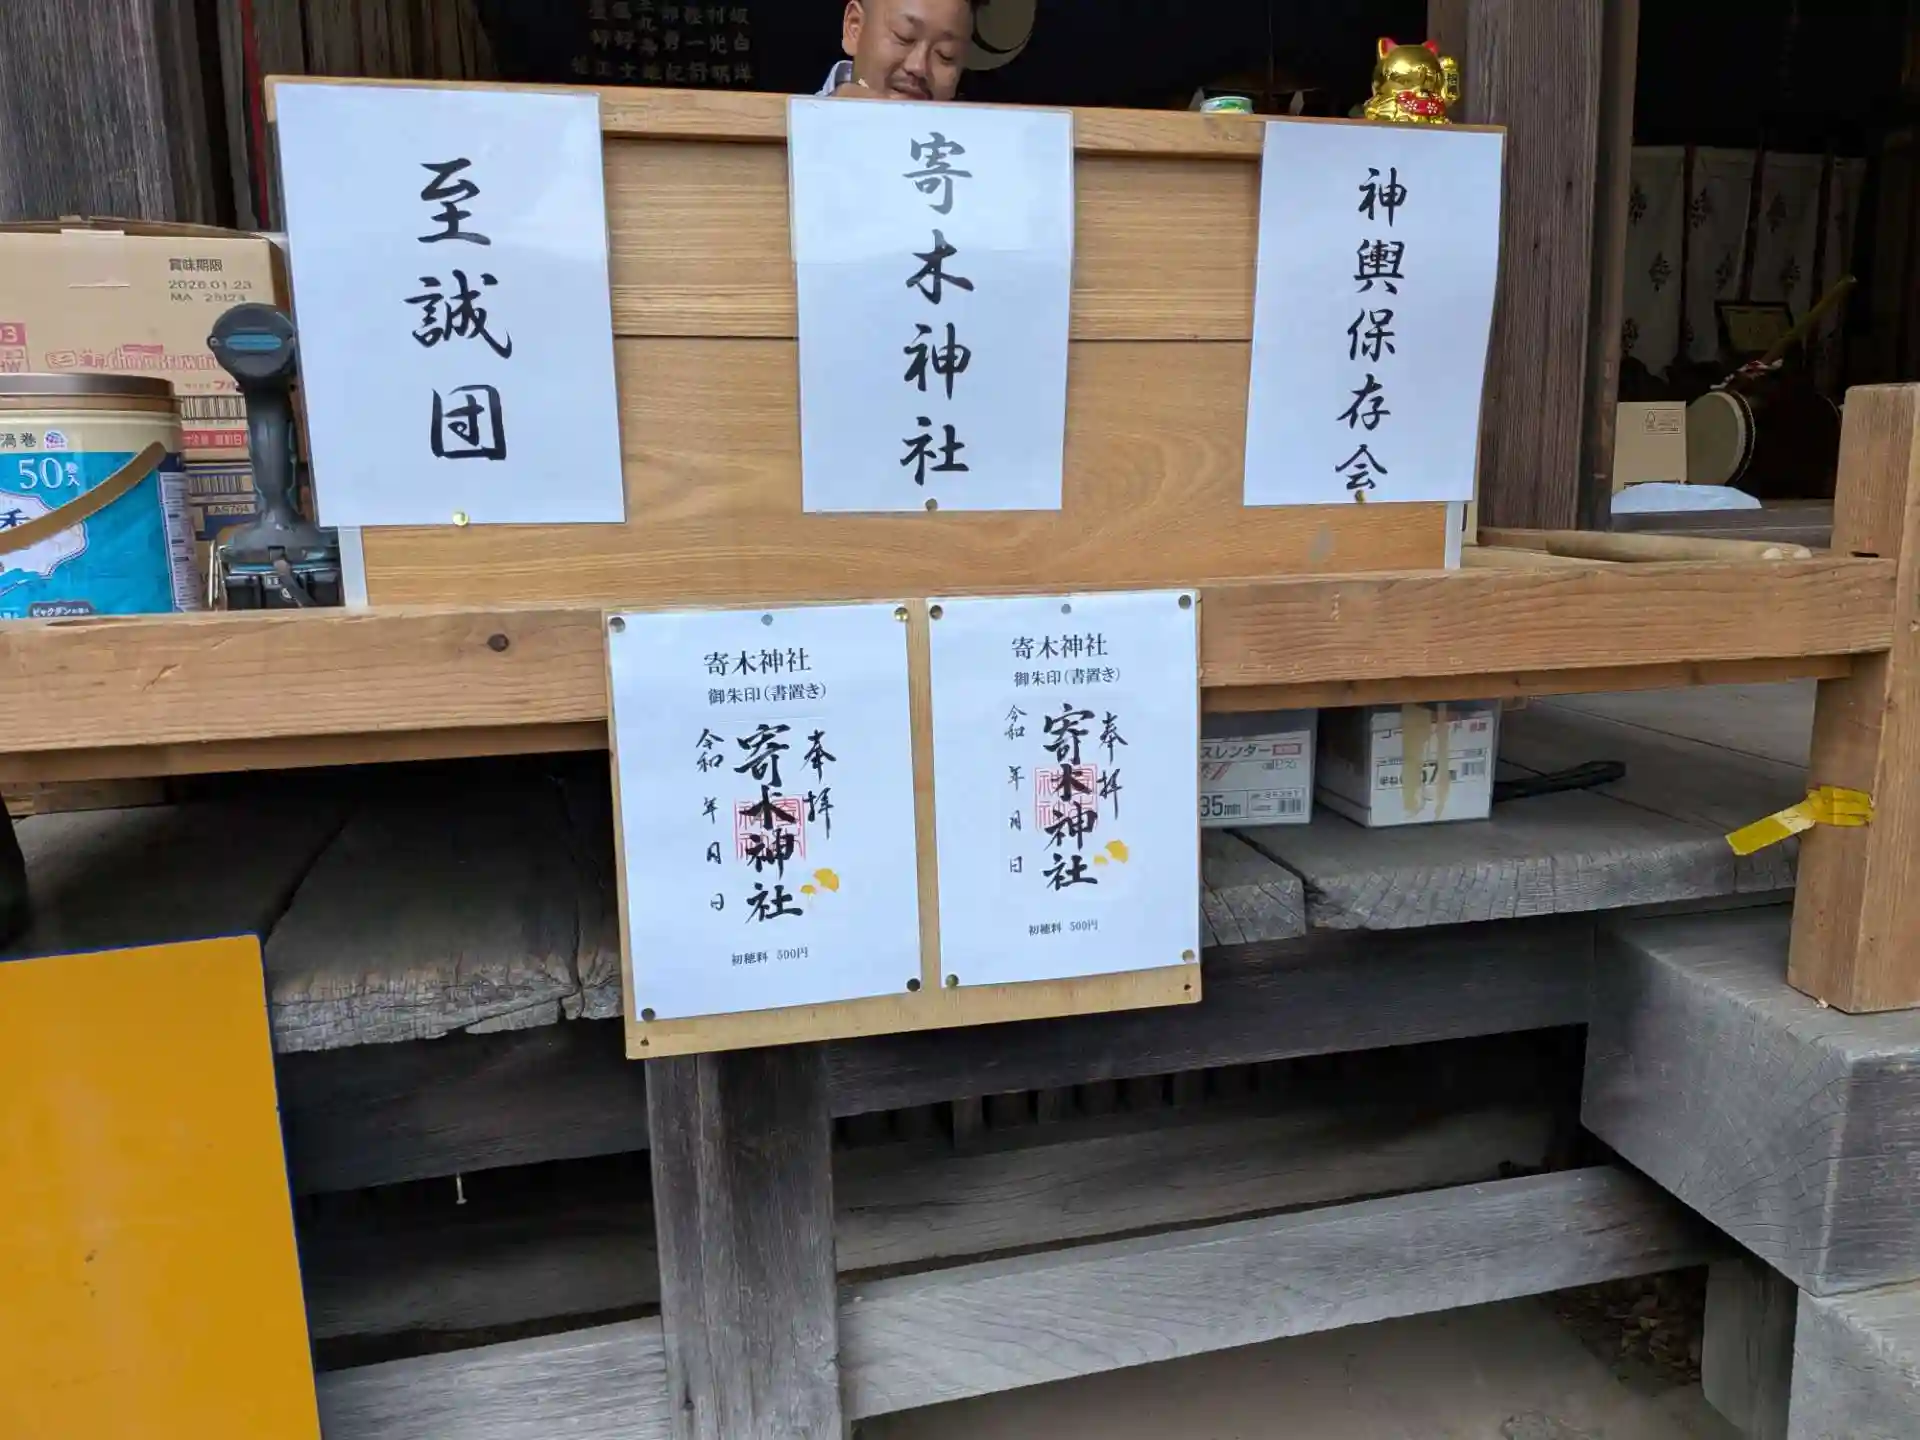 至誠団
寄木神社
神輿保存会
賞味期限
2026.01.23
渦巻
50巻入
寄木神社
御朱印（書置き）
奉拝
寄木神社
令和 年 月 日
初穂料 500円
寄木神社
御朱印（書置き）
奉拝
寄木神社
令和 年 月 日
初穂料 500円
スレンダー
35mm